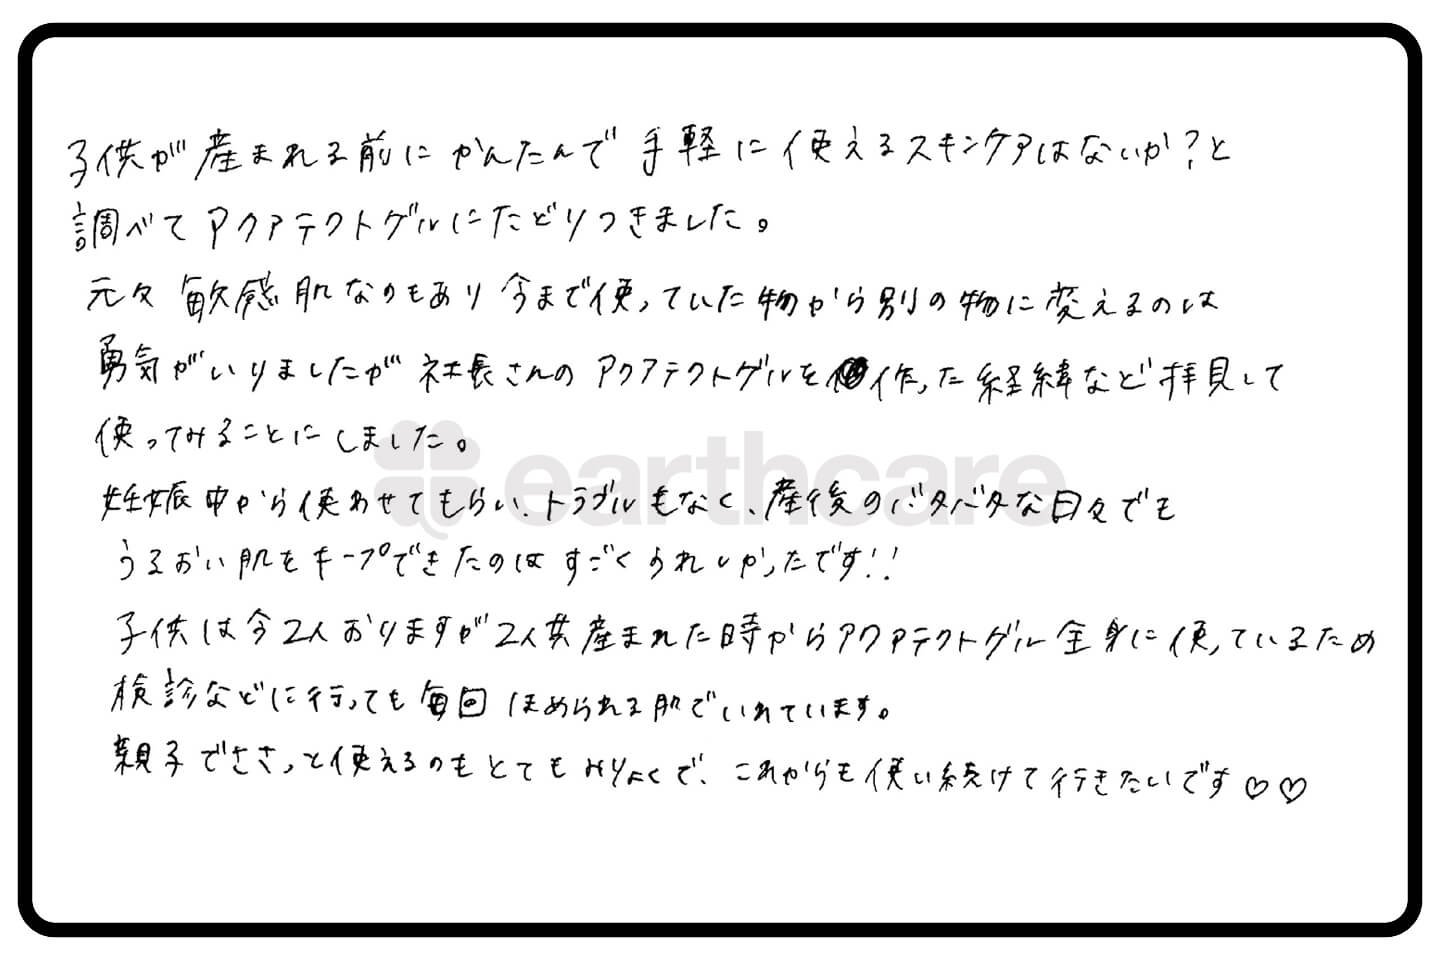 子供が産まれる前にかんたんで手軽に使えるスキンケアはないか?と
調べてアクアテクトゲルにたどりつきました。
元々敏感肌なのもあり今まで使っていた物から別の物に変えるのは
勇気がいりましたが社長さんのアクアテクトゲルを作った経緯など拝見して
使ってみることにしました。
earthcare
妊娠中から使わせてもらい、トラブルもなく、産後のバタバタな日々でも
うるおい肌をキープできたのはすごくうれしかったです!!
子供は今2人おりますが2人共産まれた時からアクアテクトゲル全身に使っているため
検診などに行っても毎回ほめられる肌でいれています。
親子でささっと使えるのもとてもみりょくで、これからも使い続けて行きたいです♡♡